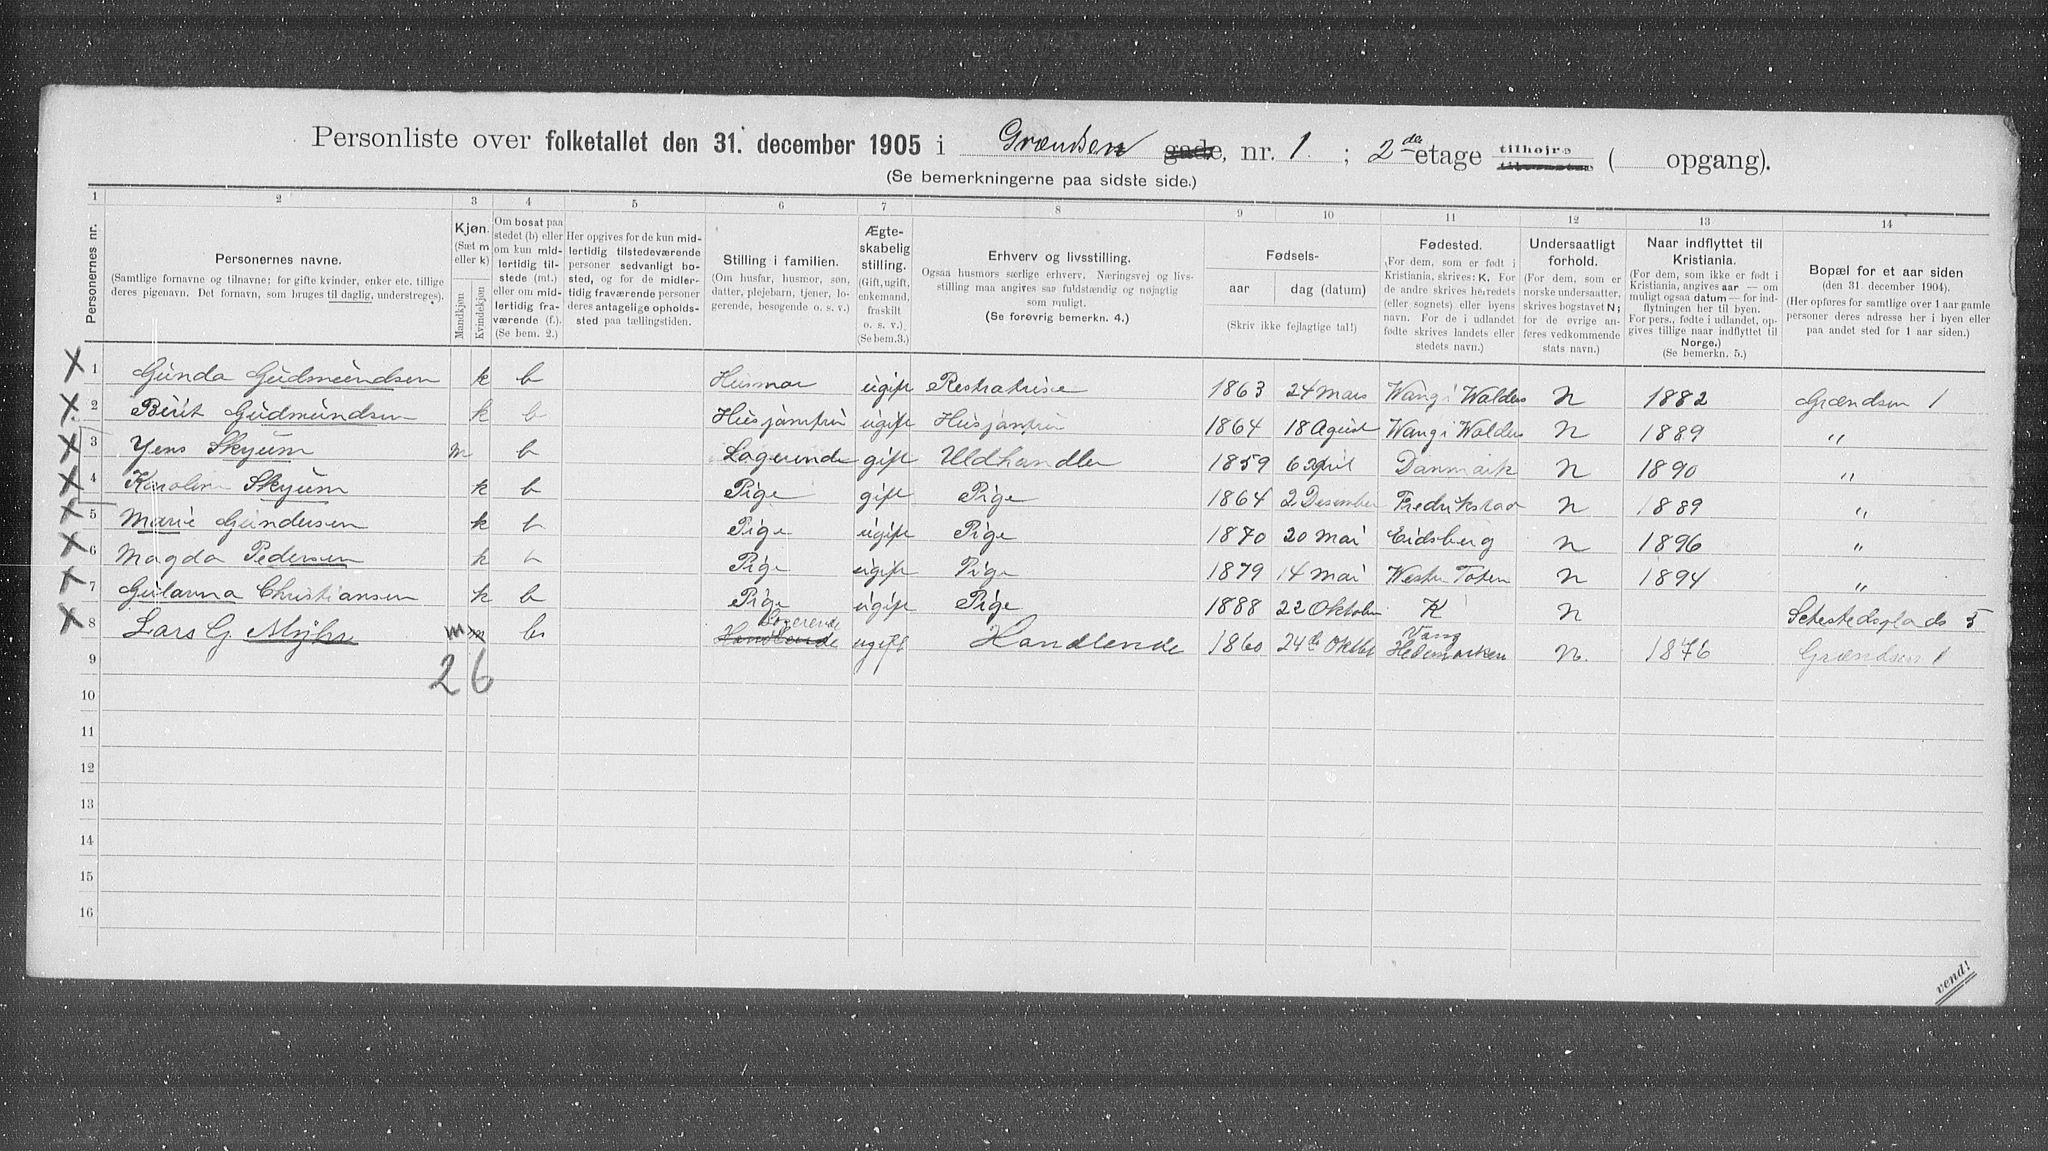 Personliste over folketallet den 31. december 1905 i Grændsen gade, nr. 1. ; 2den etage tilhøjre tilvenstre ( opgang).
(Se bemerkningerne paa sidste side.)
1 2 3 4 5 6 7 8 9 10 11 12 13 14
Personernes nr.
Personernes navne.
(Samtlige fornavne og tilnavne; for gifte kvinder, enker etc. tillige
deres pigenavn. Det fornavn, som bruges til daglig, understreges).
Kjøn.
(Sæt m
eller k)
Mandkjøn
Kvindekjøn
Om bosat paa
stedet (b) eller
om kun mid-
lertidig til-
stede (mt.)
eller om mid-
lertidig fra-
værende (f.).
(Se bem. 2.)
Her opgives for de kun mid-
lertidig tilstedeværende
personer sedvanligt bo-
sted, og for de midler-
tidig fraværende personer
deres antagelige opholds-
sted paa tællingstiden.
Stilling i familien.
(Om husfar, husmor, søn,
datter, plejebarn, tjener, lo-
gerende, besøgende o. s. v.)
Ægte-
skabelig
stilling.
(Gift, ugift,
enkemand,
fraskilt
o. s. v.)
(Se bem.3.)
Erhverv og livsstilling.
Ogsaa husmors særlige erhverv. Næringsvej og livs-
stilling maa angives saa fuldstændig og nøjagtig
som muligt.
(Se forøvrig bemerkn. 4.)
Fødsels-
aar dag (datum)
(Skriv ikke fejlagtige tal!)
Fødested.
(For dem, som er født i
Kristiania, skrives: K. For
de andre skrives herredets
(eller sognets) eller byens
navn. For de i udlandet
fødte skrives landets eller
stedets navn.)
Undersaatligt
forhold.
(For dem, som er
norske undersaatter,
skrives bogstavet N;
for de øvrige an-
føres vedkommende
stats navn.)
Naar indflyttet til
Kristiania.
(For dem, som ikke er født i
Kristiania, angives aar — om
muligt ogsaa datum — for ind-
flytningen her til byen.
For pers., fødte i udlandet, op-
gives tillige naar indflyttet til
Norge.)
(Se bemerkn. 5.)
Bopæl for et aar siden
(den 31. december 1904).
(Her opføres for samtlige over 1 aar gamle
personer deres adresse her i byen eller
paa andet sted for 1 aar siden.)
1 Gunda Gudmundsen k b Husmor ugift 1863 24 Mars Wang i Walders N 1882 Grændsen 1
2 Birit Gudmundsen k b Husjomfru ugift Husjomfru 1864 18 Agust Wang i Walders N 1889 "
3 Yens Skyum m b Logerende gift Uldhandler 1859 6 April Danmark N 1890 "
4 Karolin Skyum k b Pige gift Pige 1864 2 Desember Fredrikstad N 1889 "
5 Marie Gundersen k b Pige ugift Pige 1870 20 Mai Eidsberg N 1896 "
6 Magda Pedersen k b Pige ugift Pige 1879 14 Mai Wester Toten N 1894 "
7 Gulanna Christiansen k b Pige ugift Pige 1888 22 Oktober K N Sehestedsplads 5
8 Lars G m m b Handlende Logerende ugift Handlende 1860 24de Oktbr Vang Hedemarken N. 1876 Grændsen 1
9
26
10
11
12
13
14
15
16
vend!